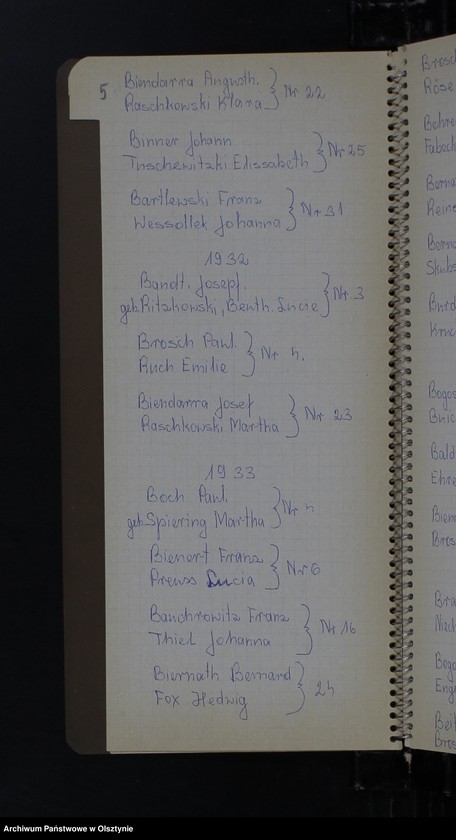 5
Biendarra Augusth.
Raschkowski Klara } Nr 22
Binner Johann
Tuschewitzki Elissabeth } Nr 25
Bartlewski Franz
Wessollek Johanna } Nr 31
1932
Bandt. Josepf.
geb. Ritzkowski, Benth. Lucie } Nr 3
Brosch Paul.
Ruch Emilie } Nr 4.
Biendarra Josef
Raschkowski Martha } Nr 23
1933
Boch Paul.
geb. Spiering Martha } Nr 4
Bienert Franz
Preuss Lucia } Nr 6
Bauchrowitz Franz
Thiel Johanna } Nr 16
Biernath Bernard
Fox Hedwig } 24
Röse
Archiwum Państwowe w Olsztynie